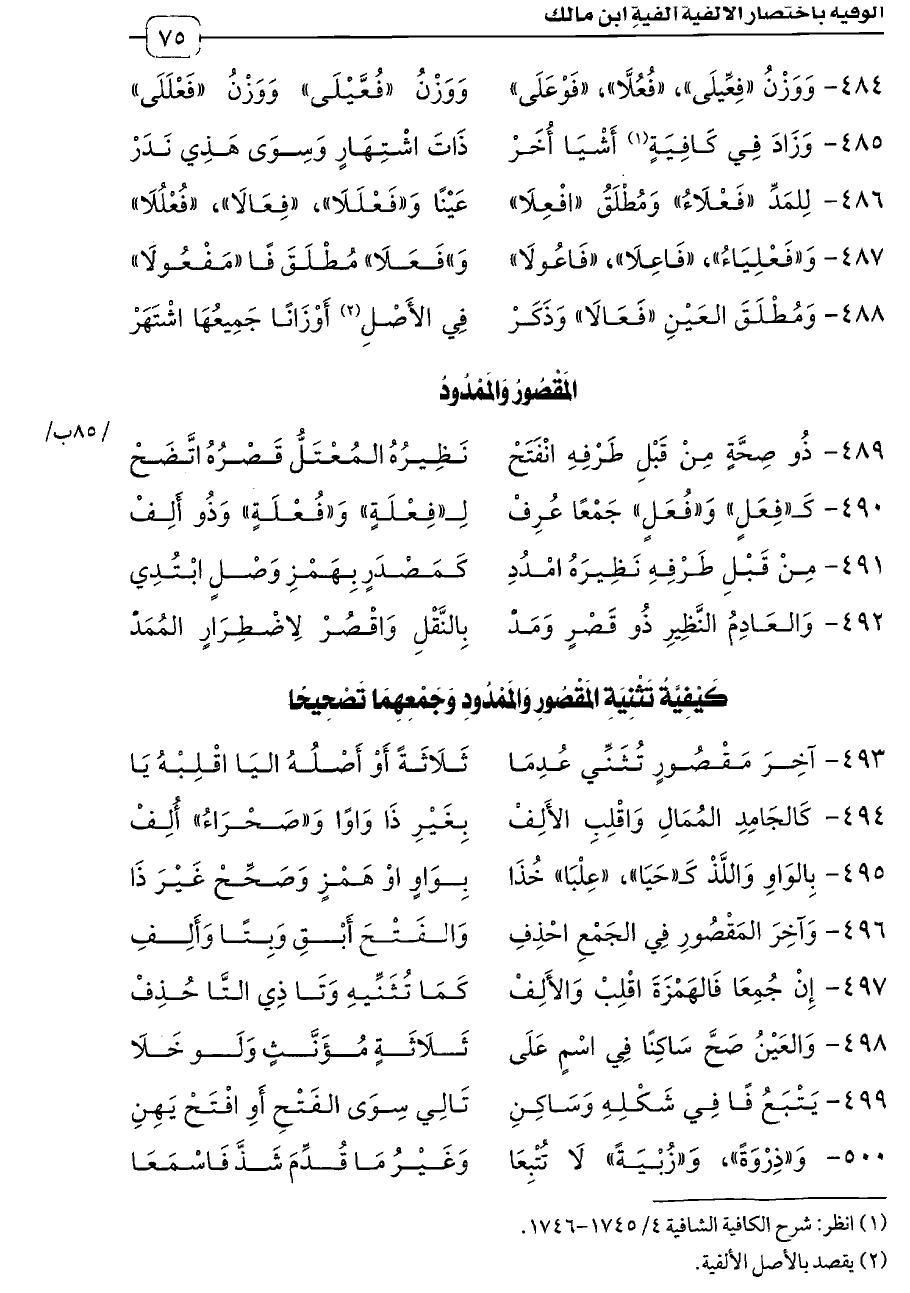 الوفية باختصار الألفية ألفية ابن مالك
٧٥
٤٨٤- وَوَزْنُ «فِعِّيلَى»، «فُعُلَّا»، «فَوْعَلَى» وَوَزْنُ «فُعَّيْلَى» وَوَزْنُ «فَعْلَلَى»
٤٨٥- وَزَادَ فِي كَافِيَةٍ(١) أَشْيَا أُخَرْ ذَاتَ اشْتِهَارٍ وَسِوَى هَذِي نَدَرْ
٤٨٦- لِلمَدِّ «فَعْلَاءُ» وَمُطْلَقُ «افْعِلَا» عَيْنًا وَ«فَعْلَلَا»، «فِعَالَا»، «فُعْلُلَا»
٤٨٧- وَ«فَعْلِيَاءُ»، «فَاعِلَا»، «فَاعُولَا» وَ«فَعَلَا» مُطْلَقَ فَا «مَفْعُولَا»
٤٨٨- وَمُطْلَقَ العَيْنِ «فَعَالَا» وَذَكَرْ فِي الأَصْلِ(٢) أَوْزَانًا جَمِيعُهَا اشْتَهَرْ
المَقْصُورُ وَالمَمْدُودُ
/٨٥ب/
٤٨٩- ذُو صِحَّةٍ مِنْ قَبْلِ طَرْفِهِ انْفَتَحْ نَظِيرُهُ المُعْتَلُّ قَصْرُهُ اتَّضَحْ
٤٩٠- كَـ«فِعَلٍ» وَ«فُعَلٍ» جَمْعًا عُرِفْ لِـ«فِعْلَةٍ» وَ«فُعْلَةٍ» وَذُو أَلِفْ
٤٩١- مِنْ قَبْلِ طَرْفِهِ نَظِيرَهُ امْدُدِ كَمَصْدَرٍ بِهَمْزِ وَصْلٍ ابْتُدِي
٤٩٢- وَالعَادِمُ النَّظِيرِ ذُو قَصْرٍ وَمَدّْ بِالنَّقْلِ وَاقْصُرْ لِاضْطِرَارٍ المُمَدّْ
كَيْفِيَّةُ تَثْنِيَةِ المَقْصُورِ وَالمَمْدُودِ وَجَمْعِهِمَا تَصْحِيحًا
٤٩٣- آخِرَ مَقْصُورٍ تُثَنِّي عُدِمَا ثَلَاثَةً أَوْ أَصْلُهُ اليَا اقْلِبْهُ يَا
٤٩٤- كَالجَامِدِ المُمَالِ وَاقْلِبِ الأَلِفْ بِغَيْرِ ذَا وَاوًا وَ«صَحْرَاءُ» أُلِفْ
٤٩٥- بِالوَاوِ وَاللَّذْ كَـ«حَيَا»، «عِلْبَا» خُذَا بِوَاوٍ اوْ هَمْزٍ وَصَحِّحْ غَيْرَ ذَا
٤٩٦- وَآخِرَ المَقْصُورِ فِي الجَمْعِ احْذِفِ وَالفَتْحَ أَبْقِ وَبِتًا وَأَلِفِ
٤٩٧- إِنْ جُمِعَا فَالهَمْزَةَ اقْلِبْ وَالأَلِفْ كَمَا تُثَنِّيهِ وَتَا ذِي التَّا حُذِفْ
٤٩٨- وَالعَيْنُ صَحَّ سَاكِنًا فِي اسْمٍ عَلَى ثَلَاثَةٍ مُؤَنَّثٍ وَلَو خَلَا
٤٩٩- يَتْبَعُ فَا فِي شَكْلِهِ وَسَاكِنِ تَالِي سِوَى الفَتْحِ أَوِ افْتَحْ يَهِنِ
٥٠٠- وَ«ذِرْوَةً»، وَ«زُبْيَةً» لَا تُتْبِعَا وَغَيْرُ مَا قُدِّمَ شَذَّ فَاسْمَعَا
(١) انظر: شرح الكافية الشافية ٤/ ١٧٤٥-١٧٤٦.
(٢) يقصد بالأصل الألفية.